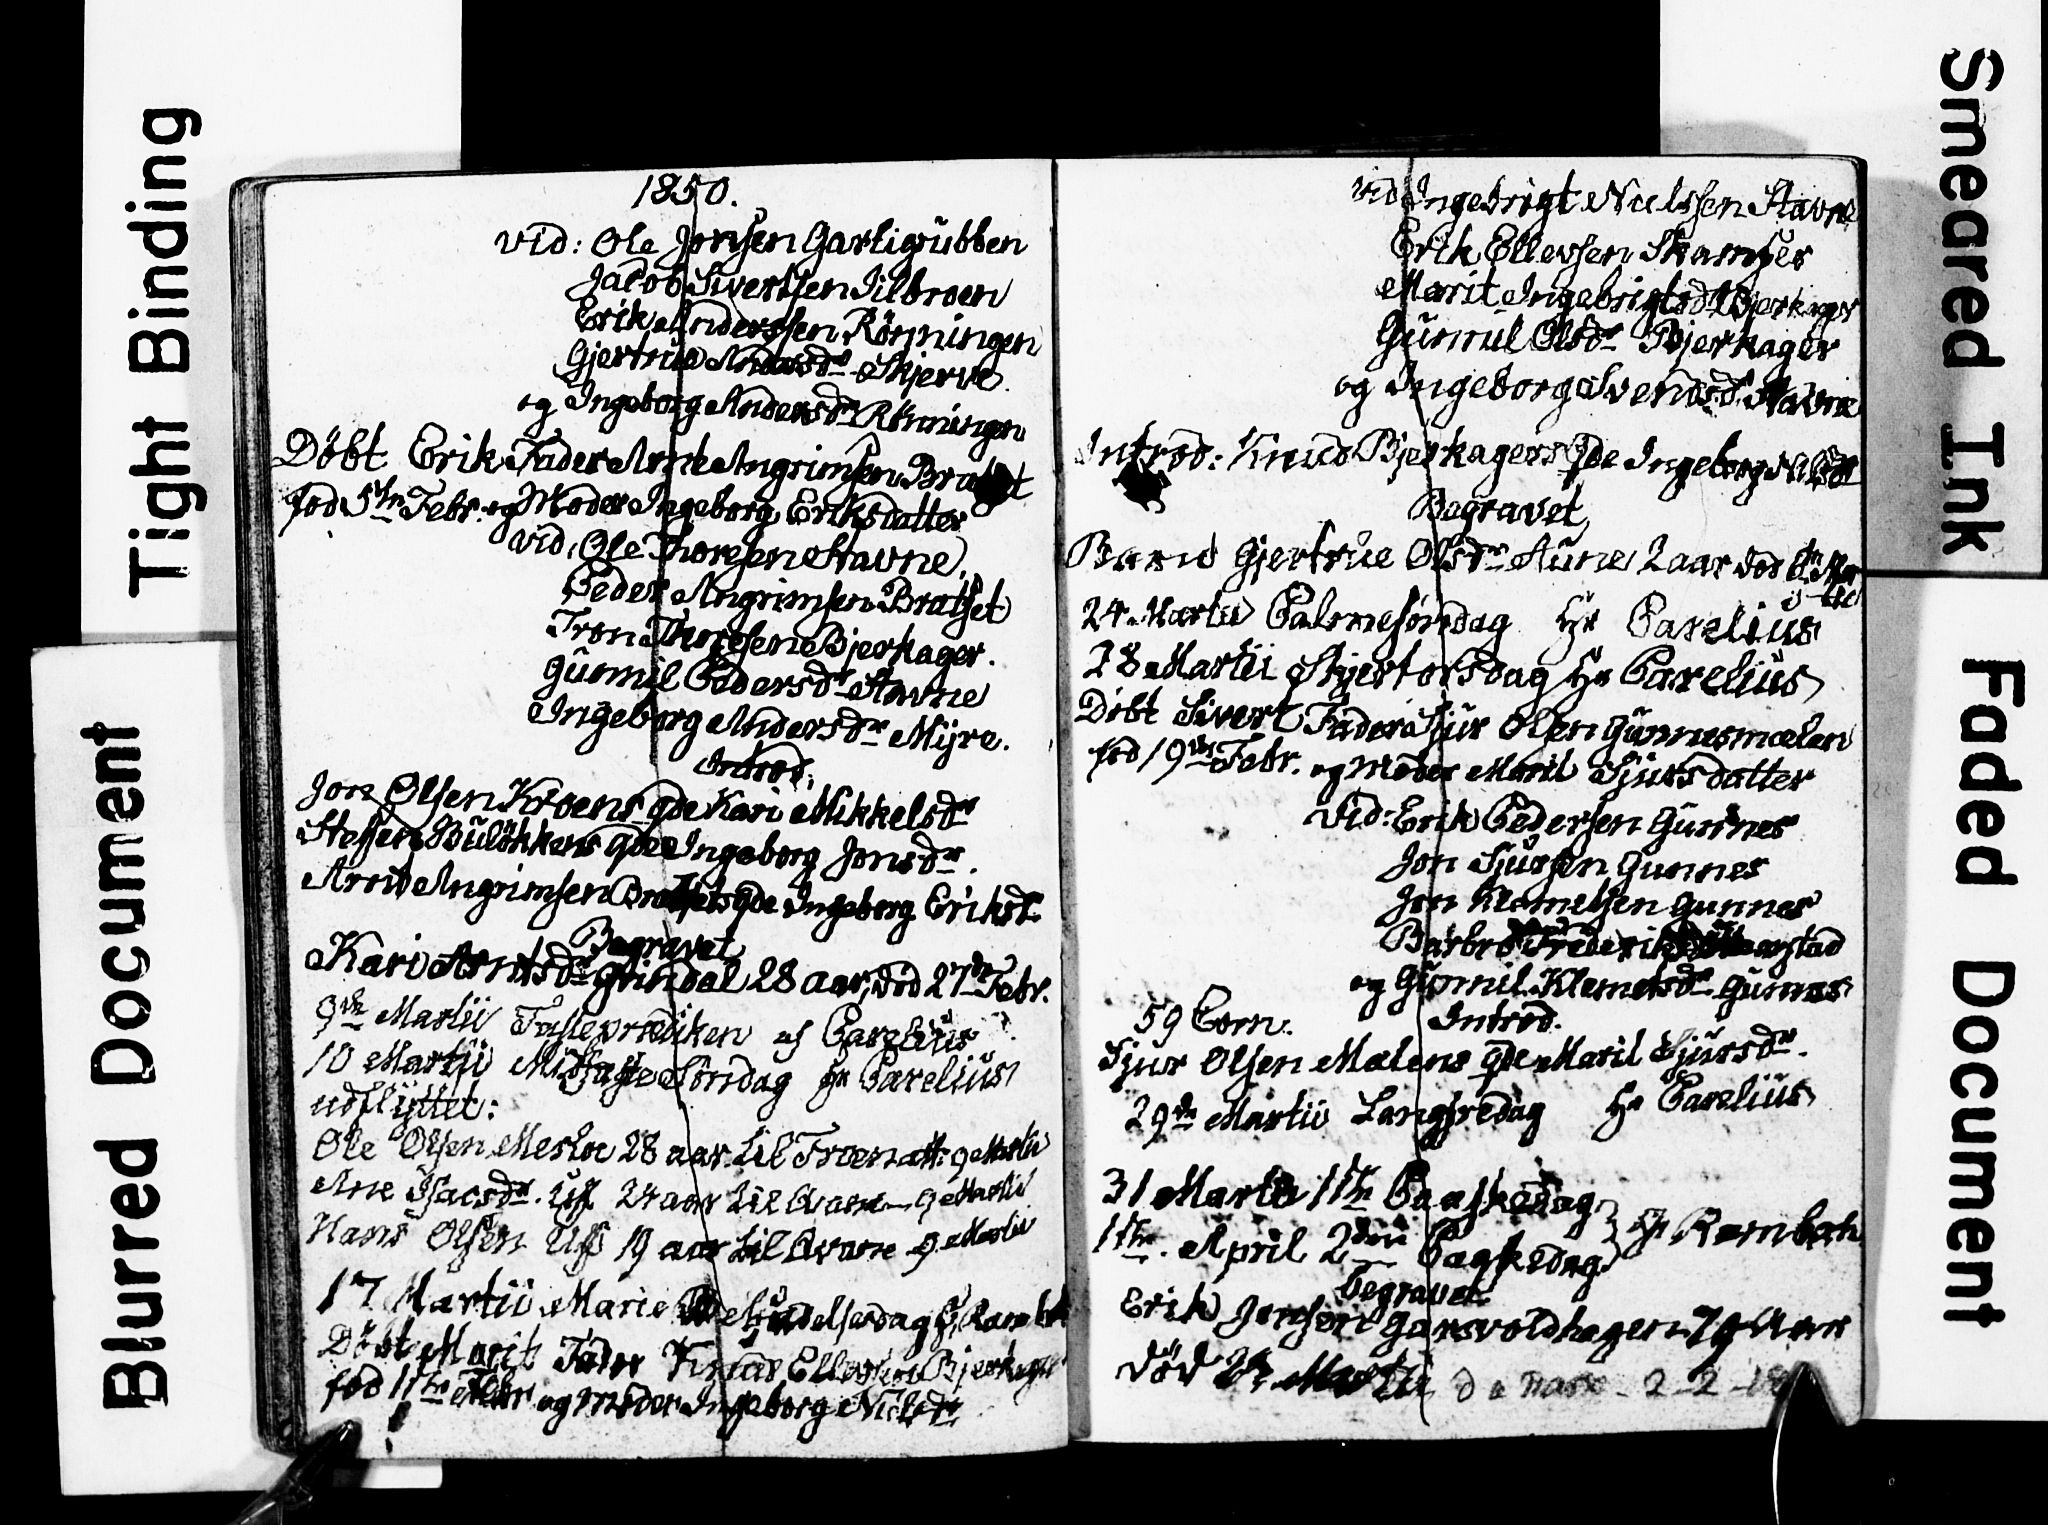 Tight Binding
Blurred Document
Smeared Ink
Faded Document
1850.
vid: Ole Jonsen Garligrübben
Jacob Sivertsen Jilbroen
Erik Anderssen Rönningen
Gjertrue Andersdr Skjerve
og Ingeborg Andersdr Rönningen
Döbt Erik Fader Arnt Angrimsen Bratset
fod 5te Febr. og Moder Ingeborg Eriksdatter
vid: Ole Thoresen Stavne
Peder Angrimsen Bratset
Tron Thoresen Bjerkager.
Gunnil Pedersdr Stavne
Ingeborg Andersdr Mijre.
Introd:
Jon Olsen Kroens qde Kari Mikkelsdr
Steffen Bülökkens qde Ingeborg Jonsdr.
Arnt Angrimsen Bratsets qde Ingeborg Eriksdr
Begravet
Kari Arntsdr Grindal 28 aar, död 27de Febr.
9de Martii Fasteprædiken af Parelius
10 Martii Midfaste Söndag Hr Parelius
udflyttet:
Ole Olsen Mesloe 28 aar til Froen att: 9 Martii
Ane Isacsdr. Uff 24 aar til Qvane 9 Martii
Hans Olsen Uff 19 aar til Qvane 9 Martii
17 Martii Marie Bebudelsesdag Hr
Döbt Marit Fader Knud Ellevsen Bjerkager
fod 11te Febr. og moder Ingeborg Nielsdr
vid Ingebrigt Nielssen Stavne
Erik Ellevsen Skamfer
Marit Ingebrigtsdr Bjerkager
Gunnil Olsdr Bjerkager
og Ingeborg Svendsdr Stavne
Introd: Knud Bjerkagers qde Ingeborg Nielsdr
Begravet
Barnet Gjertrue Olsdr Aune 2 aar död
24 Martii Palmesöndag Hr Parelius
28 Martii Skjertorsdag Hr Parelius
Döbt Sivert Fader Sjur Olsen Gunnesmælen
fod 19de Febr. og moder Maril Sjursdatter
vid: Erik Pedersen Gunnes
Jon Sjursen Gunnes
Jon Klemetsen Gunnes
Barbro
og Gunnil Klemetsdr Gunnes
59 Com. Introd.
Sjur Olsen Mælens qde Maril Sjursdr.
29de Martii Langfredag Hr Parelius
31 Martii 1te Paaskedag
1te April 2den Paaskedag } Hr Rambech
Begravet
Erik Jonsen Garsvoldhagen 79 Aar
död Martii